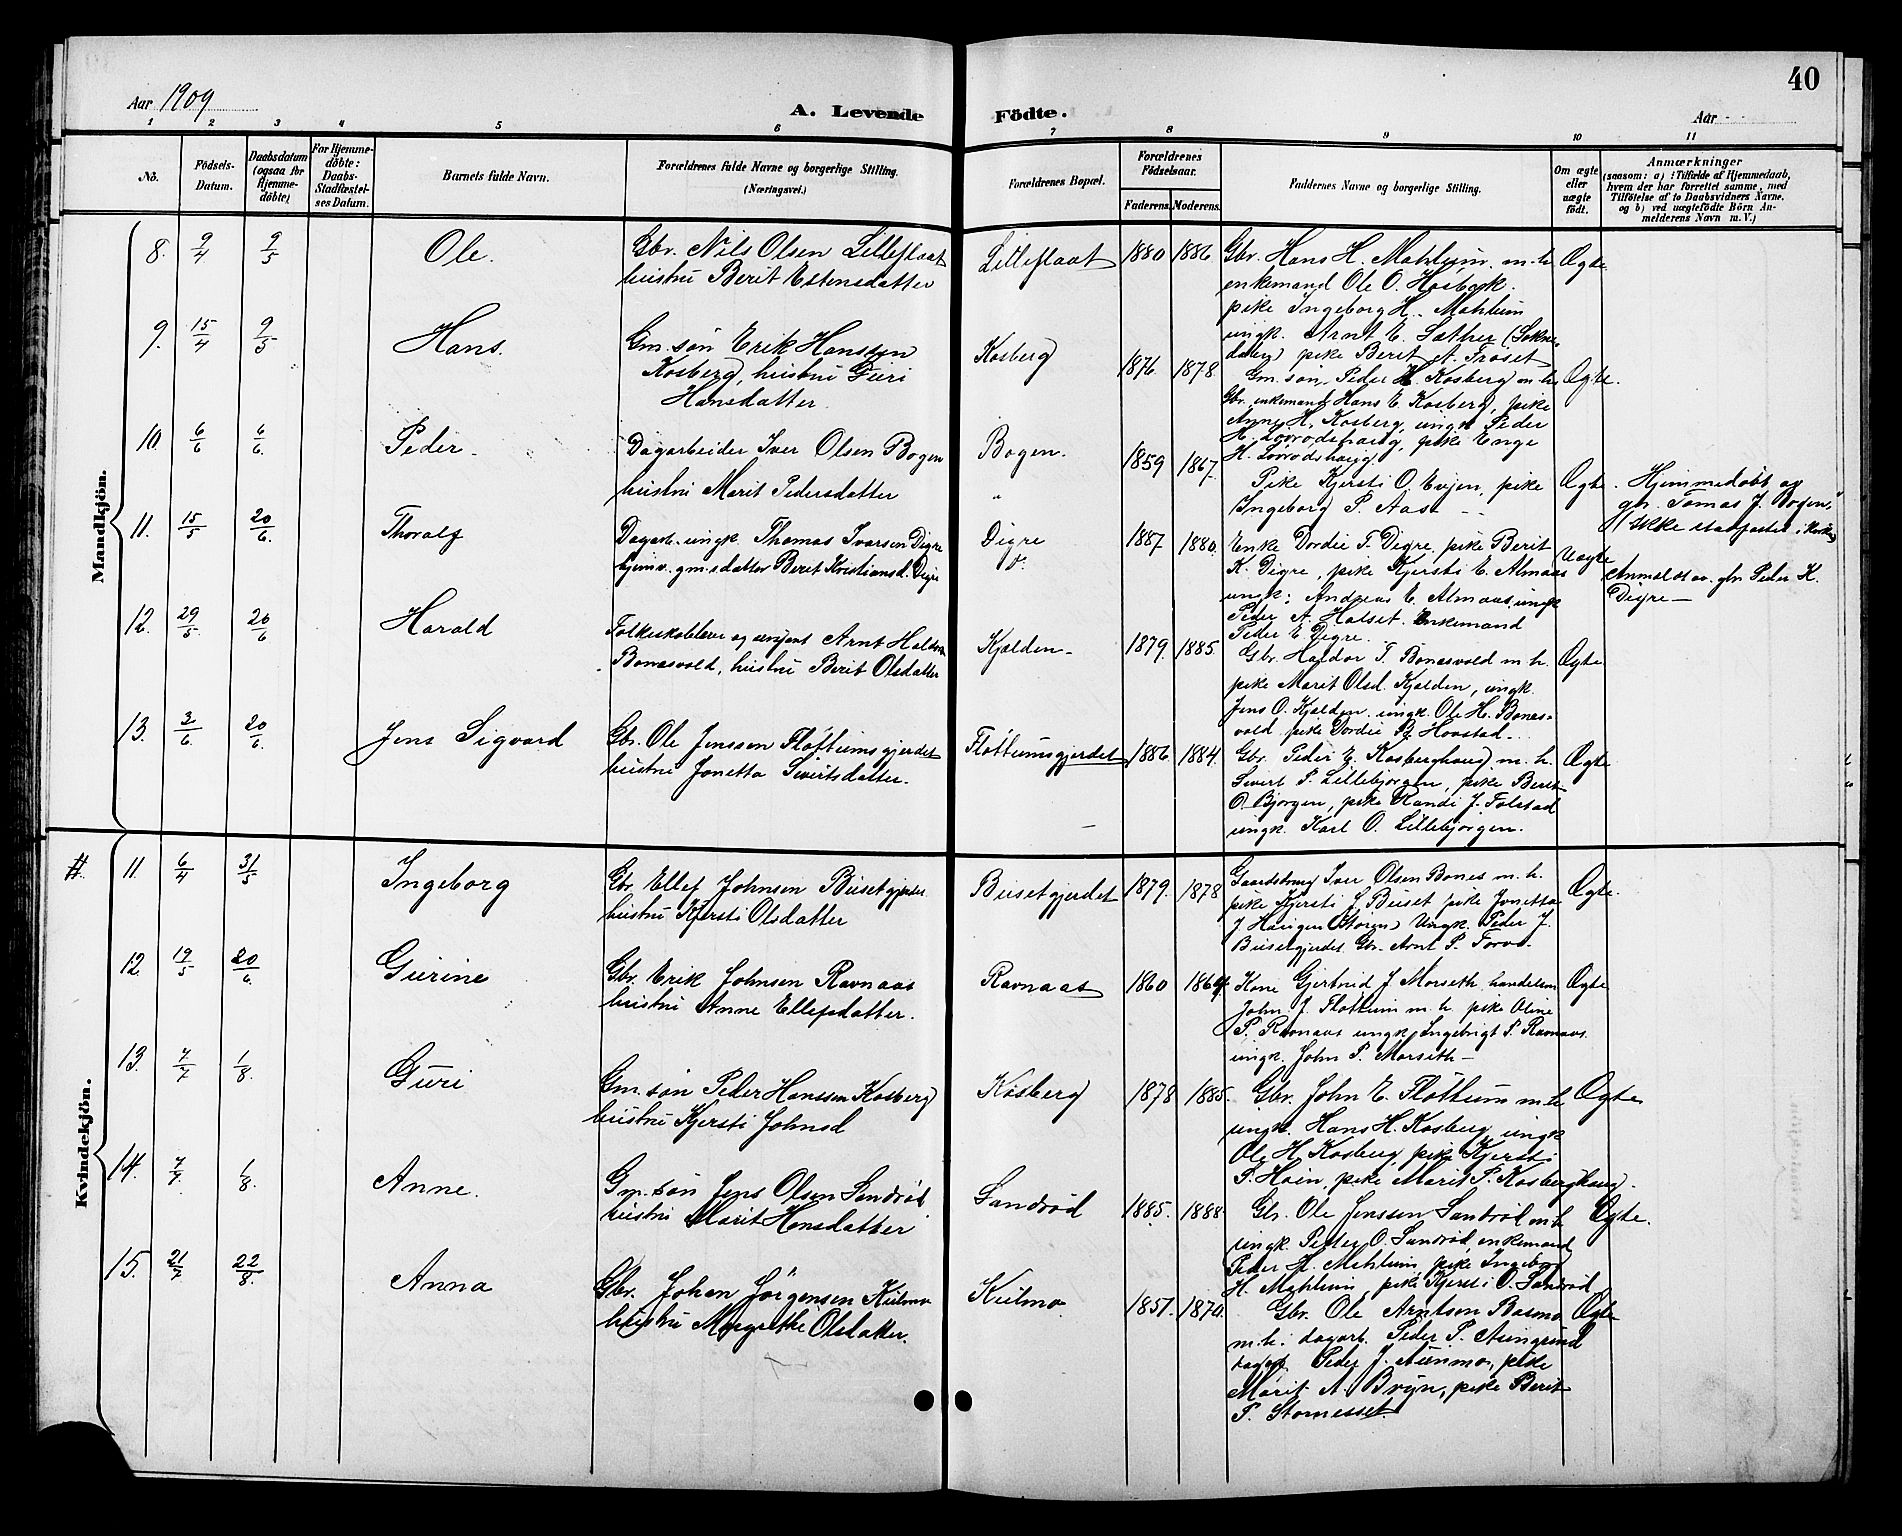 40
Aar 1909
A. Levende Födte.
Aar
1 2 3 4 5 6 7 8 9 10 11
No.
Födsels-Datum.
Daabsdatum (ogsaa for Hjemme-döbte)
For Hjemme-döbte: Daabs-Stadfæstel-ses Datum.
Barnets fulde Navn.
Forældrenes fulde Navne og borgerlige Stilling. (Næringsvei.)
Forældrenes Bopæl.
Forældrenes Födselsaar.
Faderens. Moderens.
Faddernes Navne og borgerlige Stilling.
Om ægte eller uægte födt.
Anmærkninger
(saasom: a) i Tilfælde af Hjemmedaab, hvem der har forrettet samme, med Tilföielse af to Daabsvidners Navne. og b) ved uægtefödte Börn An-melderens Navn m. V.)
Mandkjön.
8. 9/4 9/5 Ole.
Gbr. Nils Olsen Lilleflaat
hustru Berit Estensdatter
Lilleflaat 1880 1886
Gbr. Hans H. Mahlum m. h.
enkemand Ole O. Hosbak.
pike Ingeborg H. Mahlum
ungk. Arnt E. Sæther (Sokne-
dalen) pike Berit A. Frøset
Ægte
9. 15/4 9/5 Hans.
Gm. søn Erik Hanssen
Kosberg, hustru Guri
Hansdatter.
Kosberg 1876 1878
Gm. søn Peder H. Kosberg m. h.
Gbr. enkemand Hans E. Kosberg, pike
Anne H. Kosberg, ungk. Peder
H. Lovrodshaug, pike Enge
H. Lovrodshaug
Ægte.
10. 6/6 6/6. Peder.
Dagarbeider Iver Olsen Bogen
hustru Marit Pedersdatter
Bogen. 1859 1867.
Pike Kjersti O. Evjen, pike
Ingeborg P. Aas
Ægte.
Hjemmedøbt av
gbr. Tomas J. Bogen,
(Ikke stadfæstet i kirken)
11. 15/5 20/6. Thoralf
Dagarb. ungk Thomas Ivarsen Digre
hjemv. gm.sdatter Berit Kristiansd. Digre
Digre
do. 1887 1880.
Enke Dordie T. Digre, pike Berit
K. Digre, pike Kjersti E. Almaas
ungk: Andreas E. Almaas, ungk
Peder A. Halset. Enkemand
Peder E. Digre.
Uægte
Anmeldt av gbr Peder K.
Digre—
12. 29/5. 20/6 Harald
Folkeskolelærer og sersjant Arnt Haldors.
Bonesvold, hustru Berit Olsdatter
Kjelden 1879. 1885.
Gbr. Haldor T. Bonesvold m. h.
pike Marit Olsd. Kjelden, ungk.
Jens O. Kjelden. ungk. Ole H. Bones-
vold. pike Dordie B. Hovstad.
Ægte
13. 3/6. 20/6. Jens Sigvard
Gbr. Ole Jenssen Fløttumsgjerdet
hustru Jonetta Sivertsdatter.
Fløttumsgjerdet 1886 1884.
Gbr. Peder E. Kosberghaug m. h.
Sivert P. Lillebjørgen, pike Berit
O. Bjørgen, pike Randi J. Folstad
ungk. Karl O. Lillebjørgen.
Ægte
Kvindekjön.
11. 6/4 31/5 Ingeborg
Gbr. Ellef Johnsen Busetgjerdet
hustru Kjersti Olsdatter
Busetgjerdet 1879. 1878
Gaardsbrug Iver Olsen Bones m. h.
pike Kjersti E. Buset pike Jonetta
J Haugen (Støren) Ungk. Peder J.
Busetgjerdet Gbr. Arnt P. Forvo.
Ægte.
12. 19/5 20/6 Gurine
Gbr. Erik Johnsen Ravnaas
hustru Anne Ellefsdatter.
Ravnaas 1860 1869.
Kone Gjertrud J Morseth, handelsm
John J. Fløttum m. h. pike Oline
P. Ravnaas ungk. Ingebrigt P. Ravnaas
ungk. John P. Morseth—
Ægte
13. 7/7 1/8. Guri
Gm. søn Peder Hanssen Kosberg
hustru Kjersti Johnsd
Kosberg 1878 1885.
Gbr. John E. Fløttum m. h
ungk. Hans H. Kosberg ungk
Ole H. Kosberg pike Kjersti
P. Hoin, pike Marit P. Kosberghaug.
Ægte
14. 7/7. 1/8. Anne.
Gm. søn Jens Olsen Sandrød
hustru Marit Hansdatter
Sandrød 1885. 1888
Gbr. Ole Jenssen Sandrød m. h
ungk. Peder O. Sandrød, enkemand
Peder H. Mahlum, pike Ingeborg
H. Mahlum, pike Kjersti O. Sandrød
Ægte.
15. 21/7 22/8. Anna
Gbr. Johan Jörgensen Kulmo
hustru Margrethe Olsdatter.
Kulmo 1857. 1870.
Gbr. Ole Arntsen Basmo
m. h. dagarb. Peder P. Aungrind
dagarb Peder J. Aunmo, pike
Marit A. Bryn, pike Berit
P. Stornesset.
Ægte